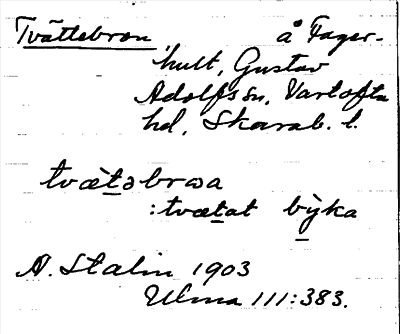 Tvättebron å Fager-
hult, Gustav
Adolfs sn, Vartofta
hd, Skarab. l.
tvætəbrωa
:tvætat býka
A. Stalin 1903
Ulma 111:383.